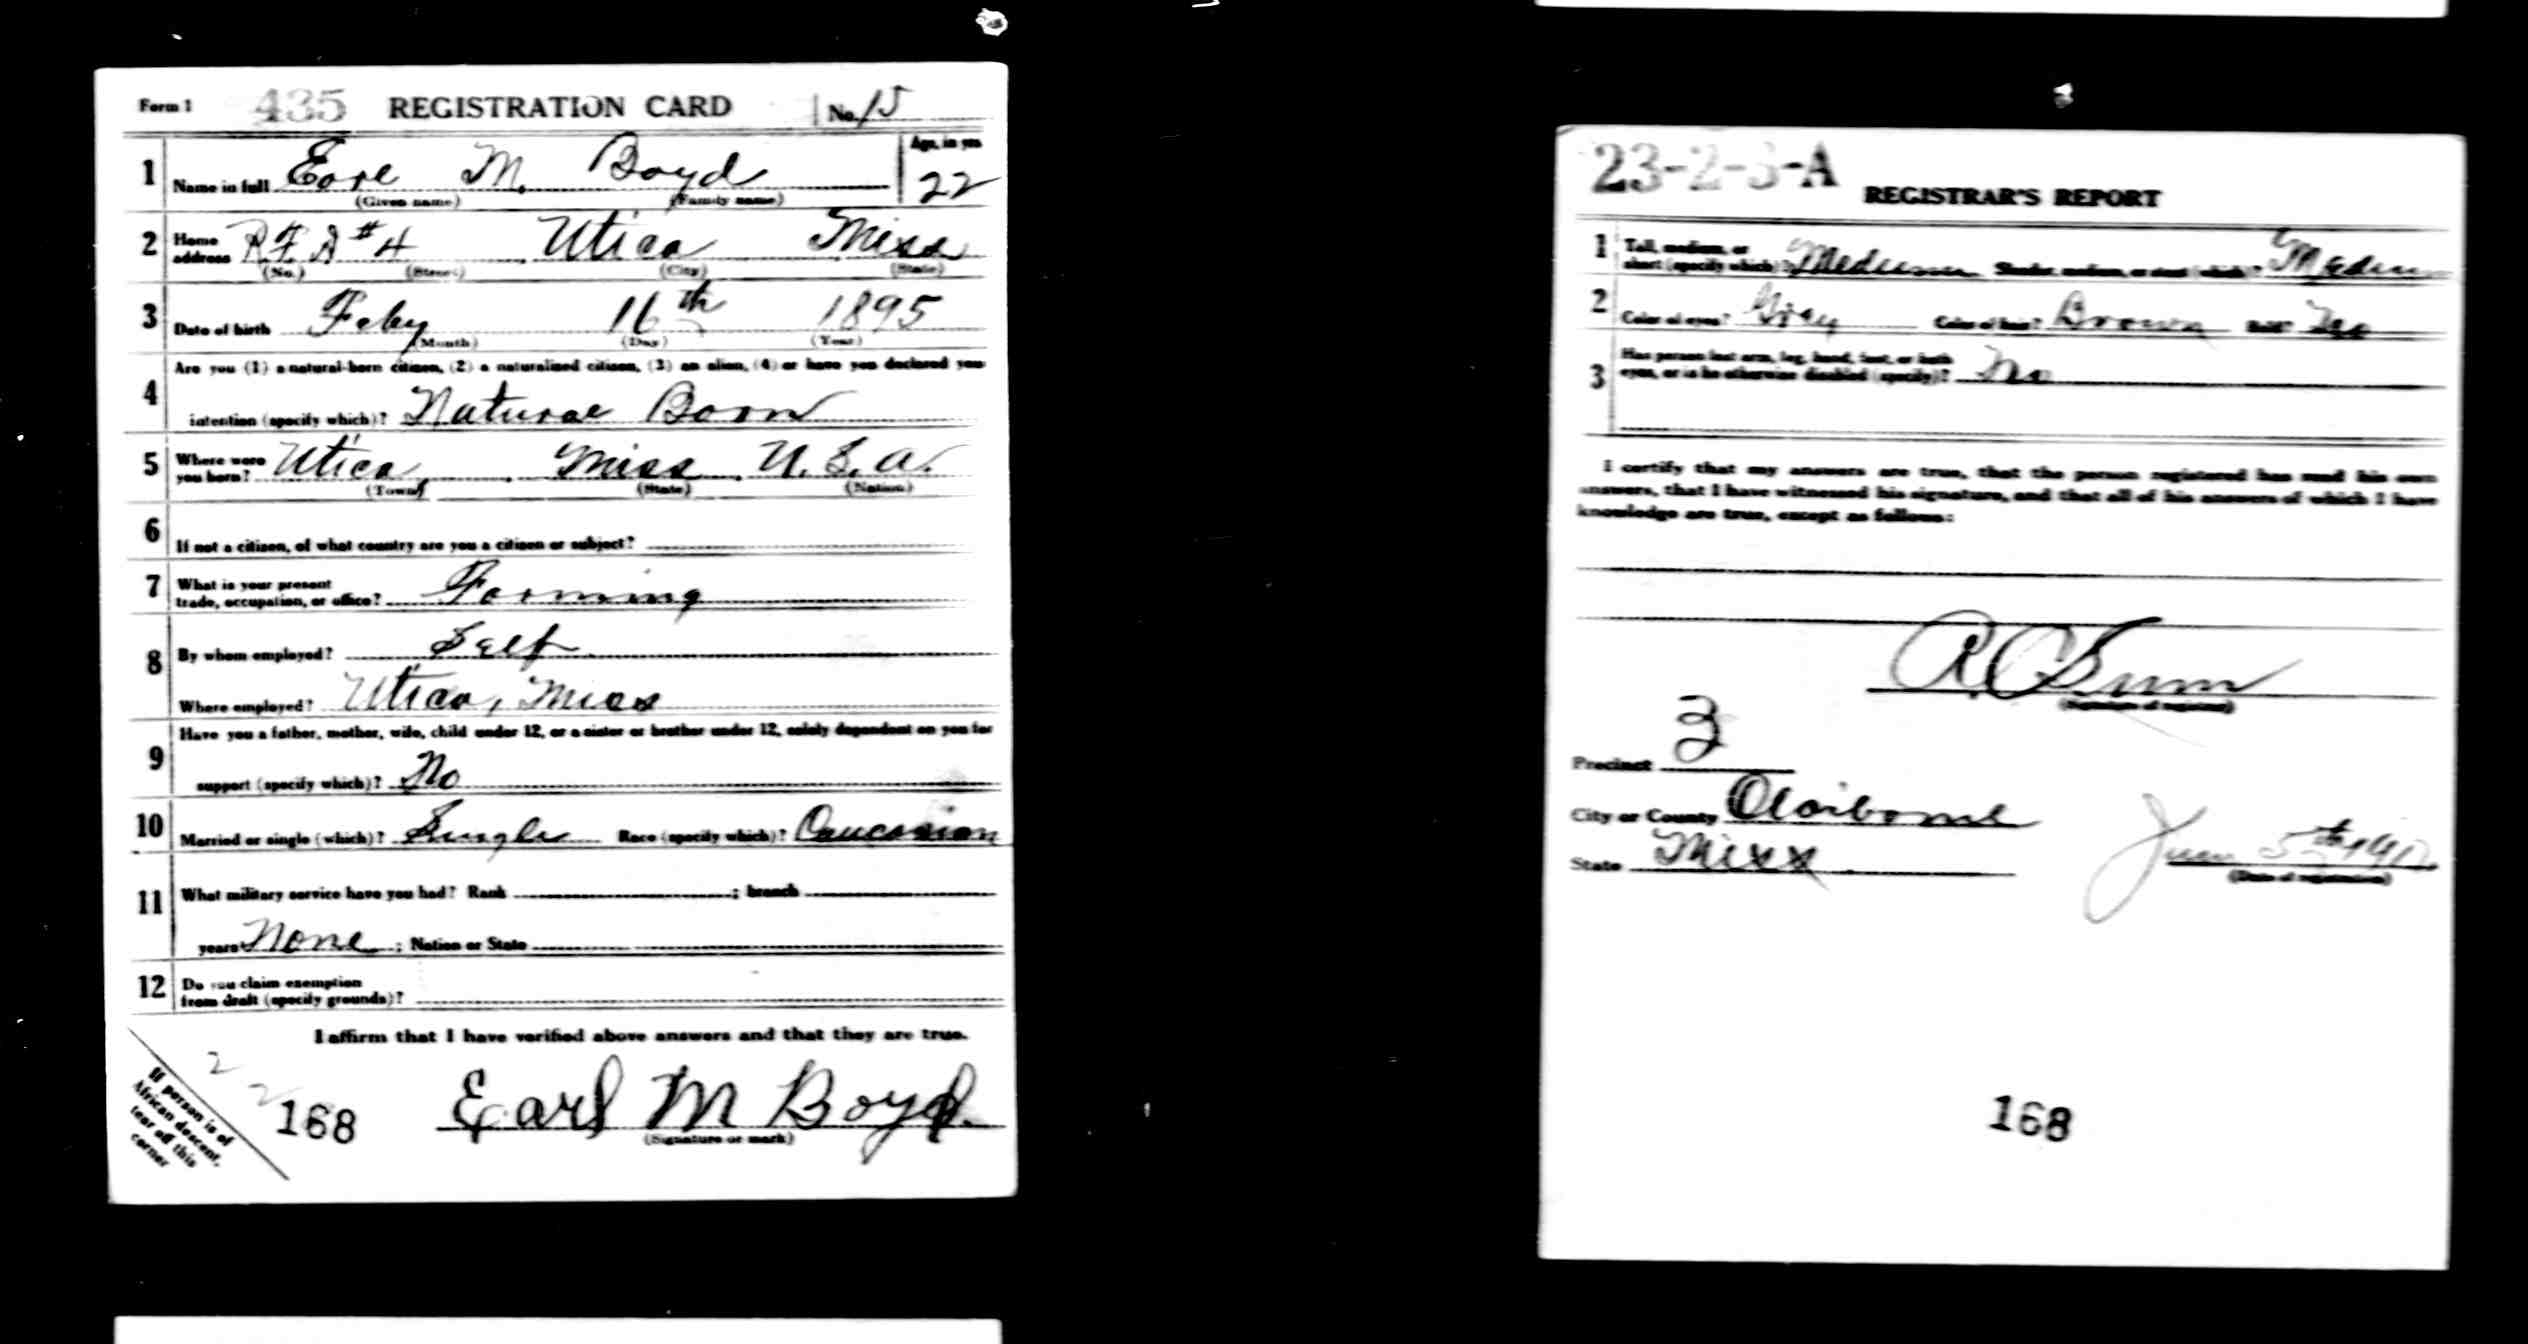 Form 1 435 REGISTRATION CARD No. 15
1 Name in full Earl M. Boyd Age, in yrs 22
(Given name) (Family name)
2 Home address R.F.D #4 Utica Miss
(No.) (Street) (City) (State)
3 Date of birth Feby 16th 1895
(Month) (Day) (Year)
4 Are you (1) a natural-born citizen, (2) a naturalized citizen, (3) an alien, (4) or have you declared your
intention (specify which)? Natural Born
5 Where were you born? Utica, Miss, U.S.A.
(Town) (State) (Nation)
6 If not a citizen, of what country are you a citizen or subject?
7 What is your present
trade, occupation, or office? Farming
8 By whom employed? Self
Where employed? Utica, Miss
9 Have you a father, mother, wife, child under 12, or a sister or brother under 12, solely dependent on you for
support (specify which)? No
10 Married or single (which)? Single Race (specify which)? Caucasian
11 What military service have you had? Rank ; branch
years None ; Nation or State
12 Do you claim exemption
from draft (specify grounds)?
I affirm that I have verified above answers and that they are true.
2
2
168 Earl M Boyd.
(Signature or mark)
If person is of
African descent,
tear off this
corner
23-2-3-A
REGISTRAR'S REPORT
1 Tall, medium, or
short (specify which)? Medium Slender, medium, or stout (which)? Medium
2 Color of eyes? Gray Color of hair? Brown Bald?
3 Has person lost arm, leg, hand, foot, or both
eyes, or is he otherwise disabled (specify)? No
I certify that my answers are true, that the person registered has read his own
answers, that I have witnessed his signature, and that all of his answers of which I have
knowledge are true, except as follows:
(Signature of registrar)
Precinct 3
City or County Claiborne
State Miss. June 5th 1917
(Date of registration)
168